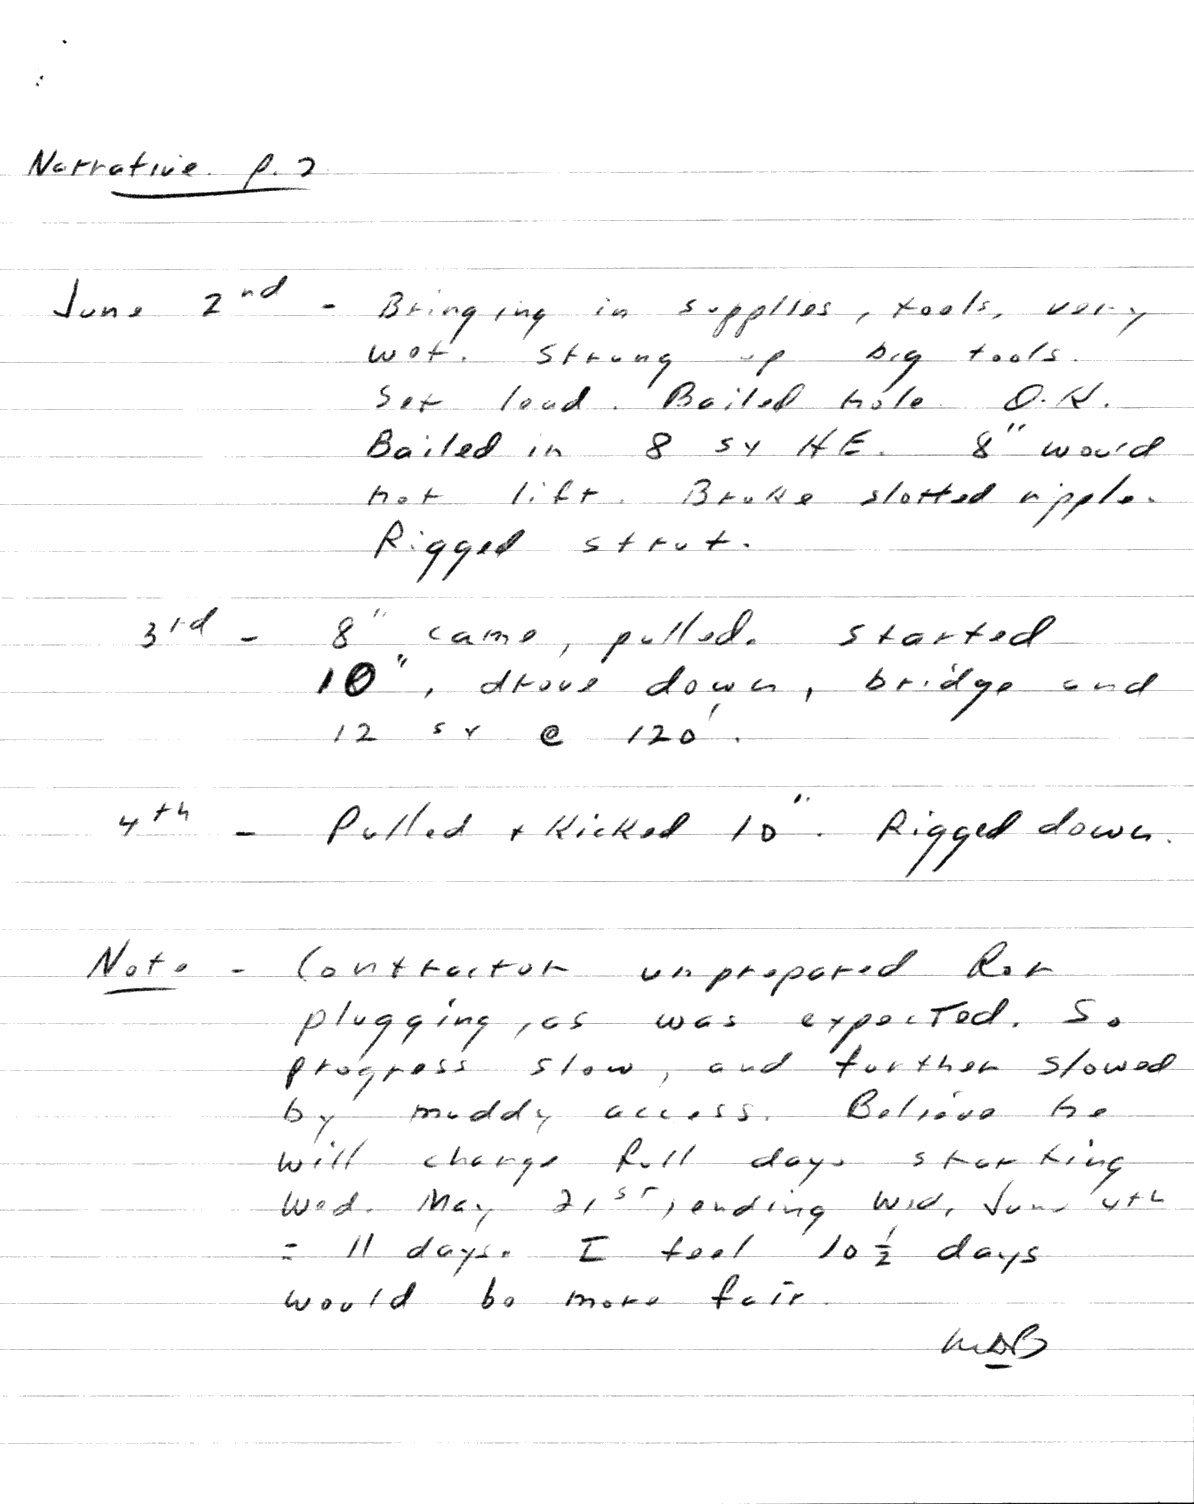 Narrative p. 2
June 2nd - Bringing in supplies, tools, very
wet. Strung up big tools.
Set lead. Bailed hole O.K.
Bailed in 8 sx HE. 8" would
not lift. Broke slotted nipple.
Rigged strut.
3rd - 8" came, pulled. Started
10", drove down, bridge and
12 sx @ 120'.
4th - Pulled + Kicked 10". Rigged down.
Note - Contractor unprepared for
plugging, as was expected. So
progress slow, and further slowed
by muddy access. Believe he
will charge full days starting
Wed. May 21st, ending Wed, June 4th
= 11 days. I feel 10 1/2 days
would be more fair.